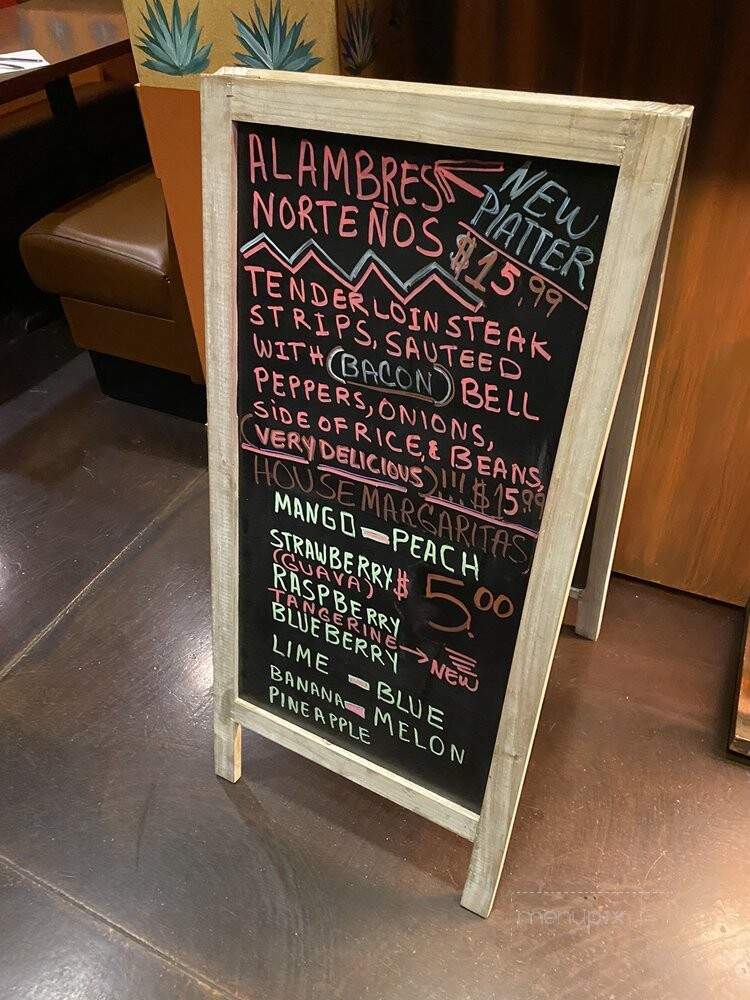 ALAMBRES NEW
NORTEÑOS PLATTER
$15.99
TENDERLOIN STEAK
STRIPS, SAUTEED
WITH (BACON) BELL
PEPPERS, ONIONS,
SIDE OF RICE, & BEANS,
(VERY DELICIOUS)!!! $15.99
HOUSE MARGARITAS,
MANGO - PEACH
STRAWBERRY
(GUAVA) $5.00
RASPBERRY
TANGERINE → NEW
BLUEBERRY
LIME - BLUE
BANANA - MELON
PINEAPPLE
menupix